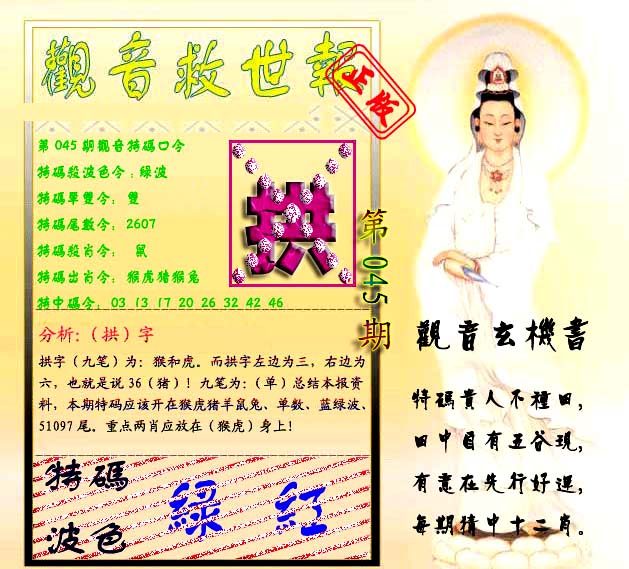 觀音救世報
正传
第 045 期觀音特碼口令
特碼殺波色令：綠波
特碼單雙令： 雙
特碼尾數令： 2607
特碼殺肖令： 鼠
特碼出肖令： 猴虎猪猴兔
特中碼令： 03 13 17 20 26 32 42 46
拱
第 045 期
分析:（拱）字
拱字（九笔）为：猴和虎。而拱字左边为三，右边为
六，也就是说 36（猪）！九笔为：（单）总结本报资
料，本期特码应该开在猴虎猪羊鼠兔、单数、蓝绿波、
51097 尾。重点两肖应放在（猴虎）身上！
特碼
波色
綠 紅
觀音玄機書
特碼貴人不種田，
田中目有五谷現，
有意在先行好運，
每期猜中十二肖。